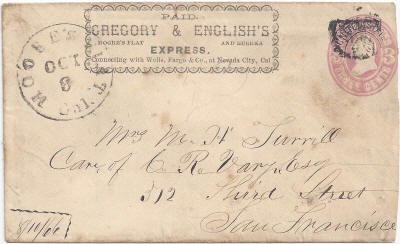 PAID.
GREGORY & ENGLISH'S
MOORE'S FLAT AND EUREKA
EXPRESS.
Connecting with Wells, Fargo & Co., at Nevada City, Cal
MOORE'S FLAT
OCT
8
Cal.
Mrs M. H Turrill
Care of C. R. Vary, Esq
312 Third Street
San Francisco